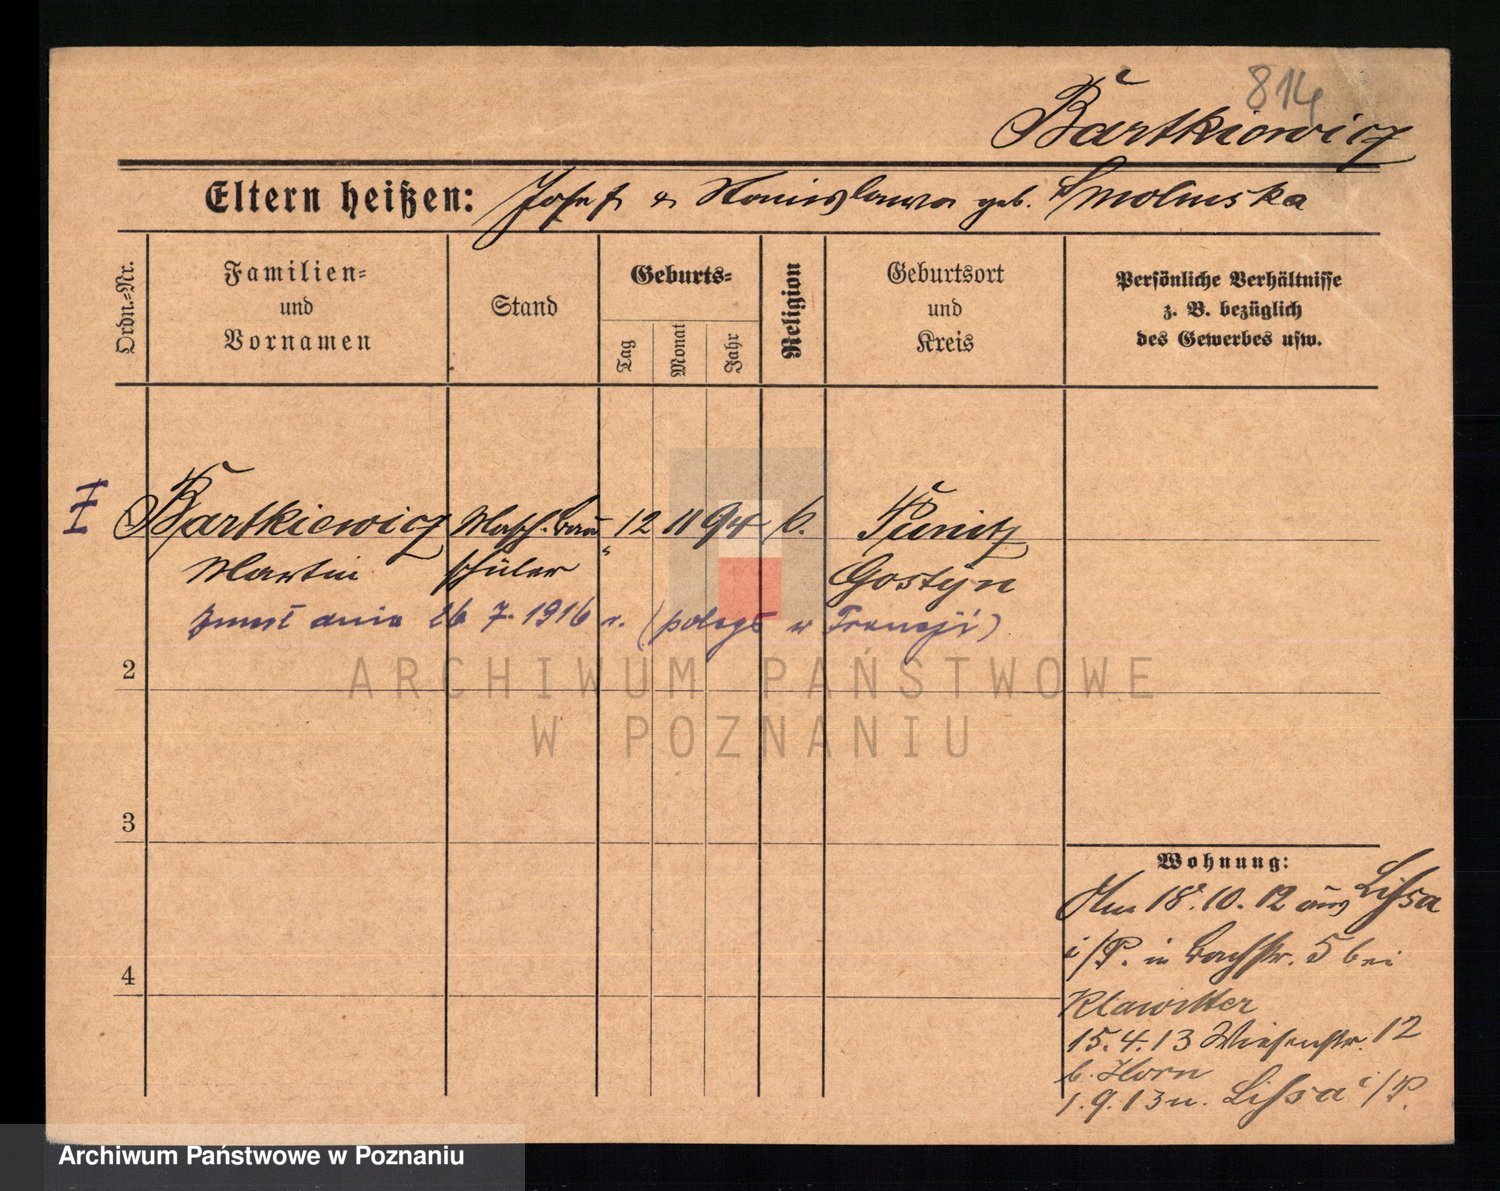 814
Bartkiewicz
Eltern heißen: Josef & Stanislawa geb. Smolinska
Ordn.=Nr.
Familien=
und
Vornamen
Stand
Geburts=
Tag
Monat
Jahr
Religion
Geburtsort
und
Kreis
Persönliche Verhältnisse
z. B. bezüglich
des Gewerbes usw.
I Bartkiewicz Masch. Bau 12 11 94 k. Punitz
Martin schüler Gostyn
zmarł dnia 26 7. 1916 r. (poległ w Francji)
2
3
4
Wohnung:
Am 18.10.12 aus Lissa
i/P. in Bachstr. 5 bei
Klawitter
15.4.13 Wiesenstr. 12
b. Horn
1.9.13 n. Lissa i/P.
ARCHIWUM PAŃSTWOWE
W POZNANIU
Archiwum Państwowe w Poznaniu